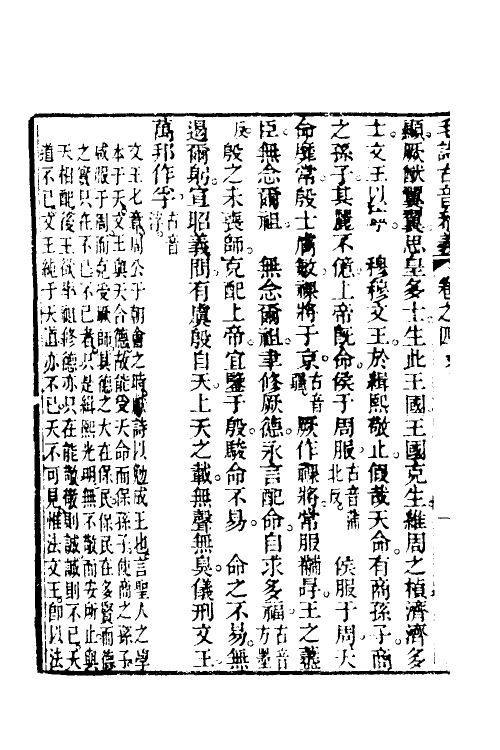 毛詩古音參義 卷之四
顯厥猷翼翼思皇多士生此王國王國克生維周之楨濟濟多
士文王以寧　穆穆文王於緝熙敬止假哉天命有商孫子商
之孫子其麗不億上帝既命侯于周服古音蒲北反　侯服于周天
命靡常殷士膚敏祼將于京古音　厥作祼將常服黼冔王之藎
臣無念爾祖　無念爾祖聿修厥德永言配命自求多福古音方墨
反殷之未喪師克配上帝宜鑒于殷駿命不易　命之不易無
遏爾躬宣昭義問有虞殷自天上天之載無聲無臭儀刑文王
萬邦作孚古音浮
文王七章周公于朝會之時獻詩以勉成王也言聖人之學
本于天文王與天合德故能受天命而保孫子使商之孫子
咸服于周而克爰厥師其德之大在保民保民在多賢而德
之實只在不已不已者只是緝熙光明無不敬而安所止與
天相配後王欲聿祖修德亦只在能敬敬則誠誠則不已天
道不已文王純于天道亦不已天不可見惟法文王卽以法